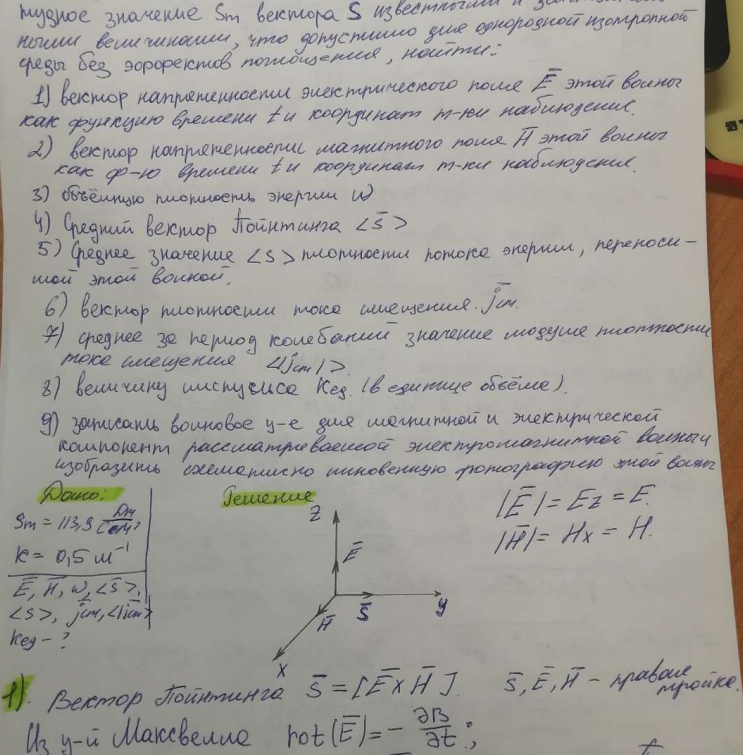 тудное значение Sm вектора S известными и
ными величинами, что допустимо для однородной изотропной
среды без эффектов поглощения, найти:
1) вектор напряженности электрического поля E̅ этой волны
как функцию времени t и координат т-ки наблюдения.
2) вектор напряженности магнитного поля H̅ этой волны
как ф-ю времени t и координат т-ки наблюдения.
3) объёмную плотность энергии w
4) Средний вектор Пойнтинга <S̅>
5) Среднее значение <S> плотности потока энергии, переноси-
мой этой волной.
6) вектор плотности тока смещения j̅см.
7) среднее за период колебаний значение модуля плотности
тока смещения <|jсм|>.
8) величину импульса Kед. (в единице объёма).
9) записать волновое у-е для магнитной и электрической
компонент рассматриваемой электромагнитной волны и
изобразить схематично мгновенную фотографию этой волны
Дано:
Sm = 113,9 Дж/(с·м²)
k = 0,5 м⁻¹
E̅, H̅, w, <S̅>,
<S>, j̅см, <|jсм|>
Kед - ?
Решение
Z
E̅
S̅
y
H̅
X
|E̅| = Ez = E.
|H̅| = Hx = H.
1). Вектор Пойнтинга S̅ = [E̅ x H̅]. S̅, E̅, H̅ - правая
тройка.
Из у-й Максвелла rot(E̅) = - ∂B̅/∂t;